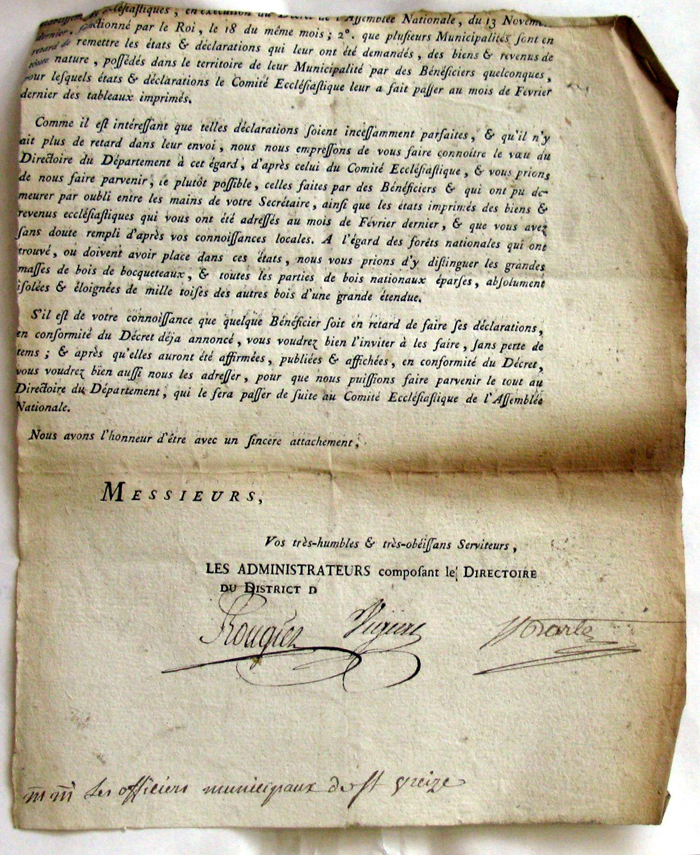 ecclésiastiques, en exécution du Décret de l'Assemblée Nationale, du 13 Novem-
dernier, sanctionné par le Roi, le 18 du même mois ; 2°. que plusieurs Municipalités sont en
retard de remettre les états & déclarations qui leur ont été demandés, des biens & revenus de
toute nature, possédés dans le territoire de leur Municipalité par des Bénéficiers quelconques,
pour lesquels états & déclarations le Comité Ecclésiastique leur a fait passer au mois de Février
dernier des tableaux imprimés.
Comme il est intéressant que telles déclarations soient incessamment parfaites, & qu'il n'y
ait plus de retard dans leur envoi, nous nous empressons de vous faire connoître le vœu du
Directoire du Département à cet égard, d'après celui du Comité Ecclésiastique, & vous prions
de nous faire parvenir, le plutôt possible, celles faites par des Bénéficiers & qui ont pu de-
meurer par oubli entre les mains de votre Secrétaire, ainsi que les états imprimés des biens &
revenus ecclésiastiques qui vous ont été adressés au mois de Février dernier, & que vous avez
sans doute rempli d'après vos connoissances locales. A l'égard des forêts nationales qui ont
trouvé, ou doivent avoir place dans ces états, nous vous prions d'y distinguer les grandes
masses de bois de bocqueteaux, & toutes les parties de bois nationaux éparses, absolument
isolées & éloignées de mille toises des autres bois d'une grande étendue.
S'il est de votre connoissance que quelque Bénéficier soit en retard de faire ses déclarations,
en conformité du Décret déja annoncé, vous voudrez bien l'inviter à les faire, sans perte de
tems ; & après qu'elles auront été affirmées, publiées & affichées, en conformité du Décret,
vous voudrez bien aussi nous les adresser, pour que nous puissions faire parvenir le tout au
Directoire du Département, qui le fera passer de suite au Comité Ecclésiastique de l'Assemblée
Nationale.
Nous avons l'honneur d'être avec un sincère attachement,
MESSIEURS,
Vos très-humbles & très-obéissans Serviteurs,
LES ADMINISTRATEURS composant le DIRECTOIRE
DU DISTRICT D
Rougier
mm les officiers municipaux de st